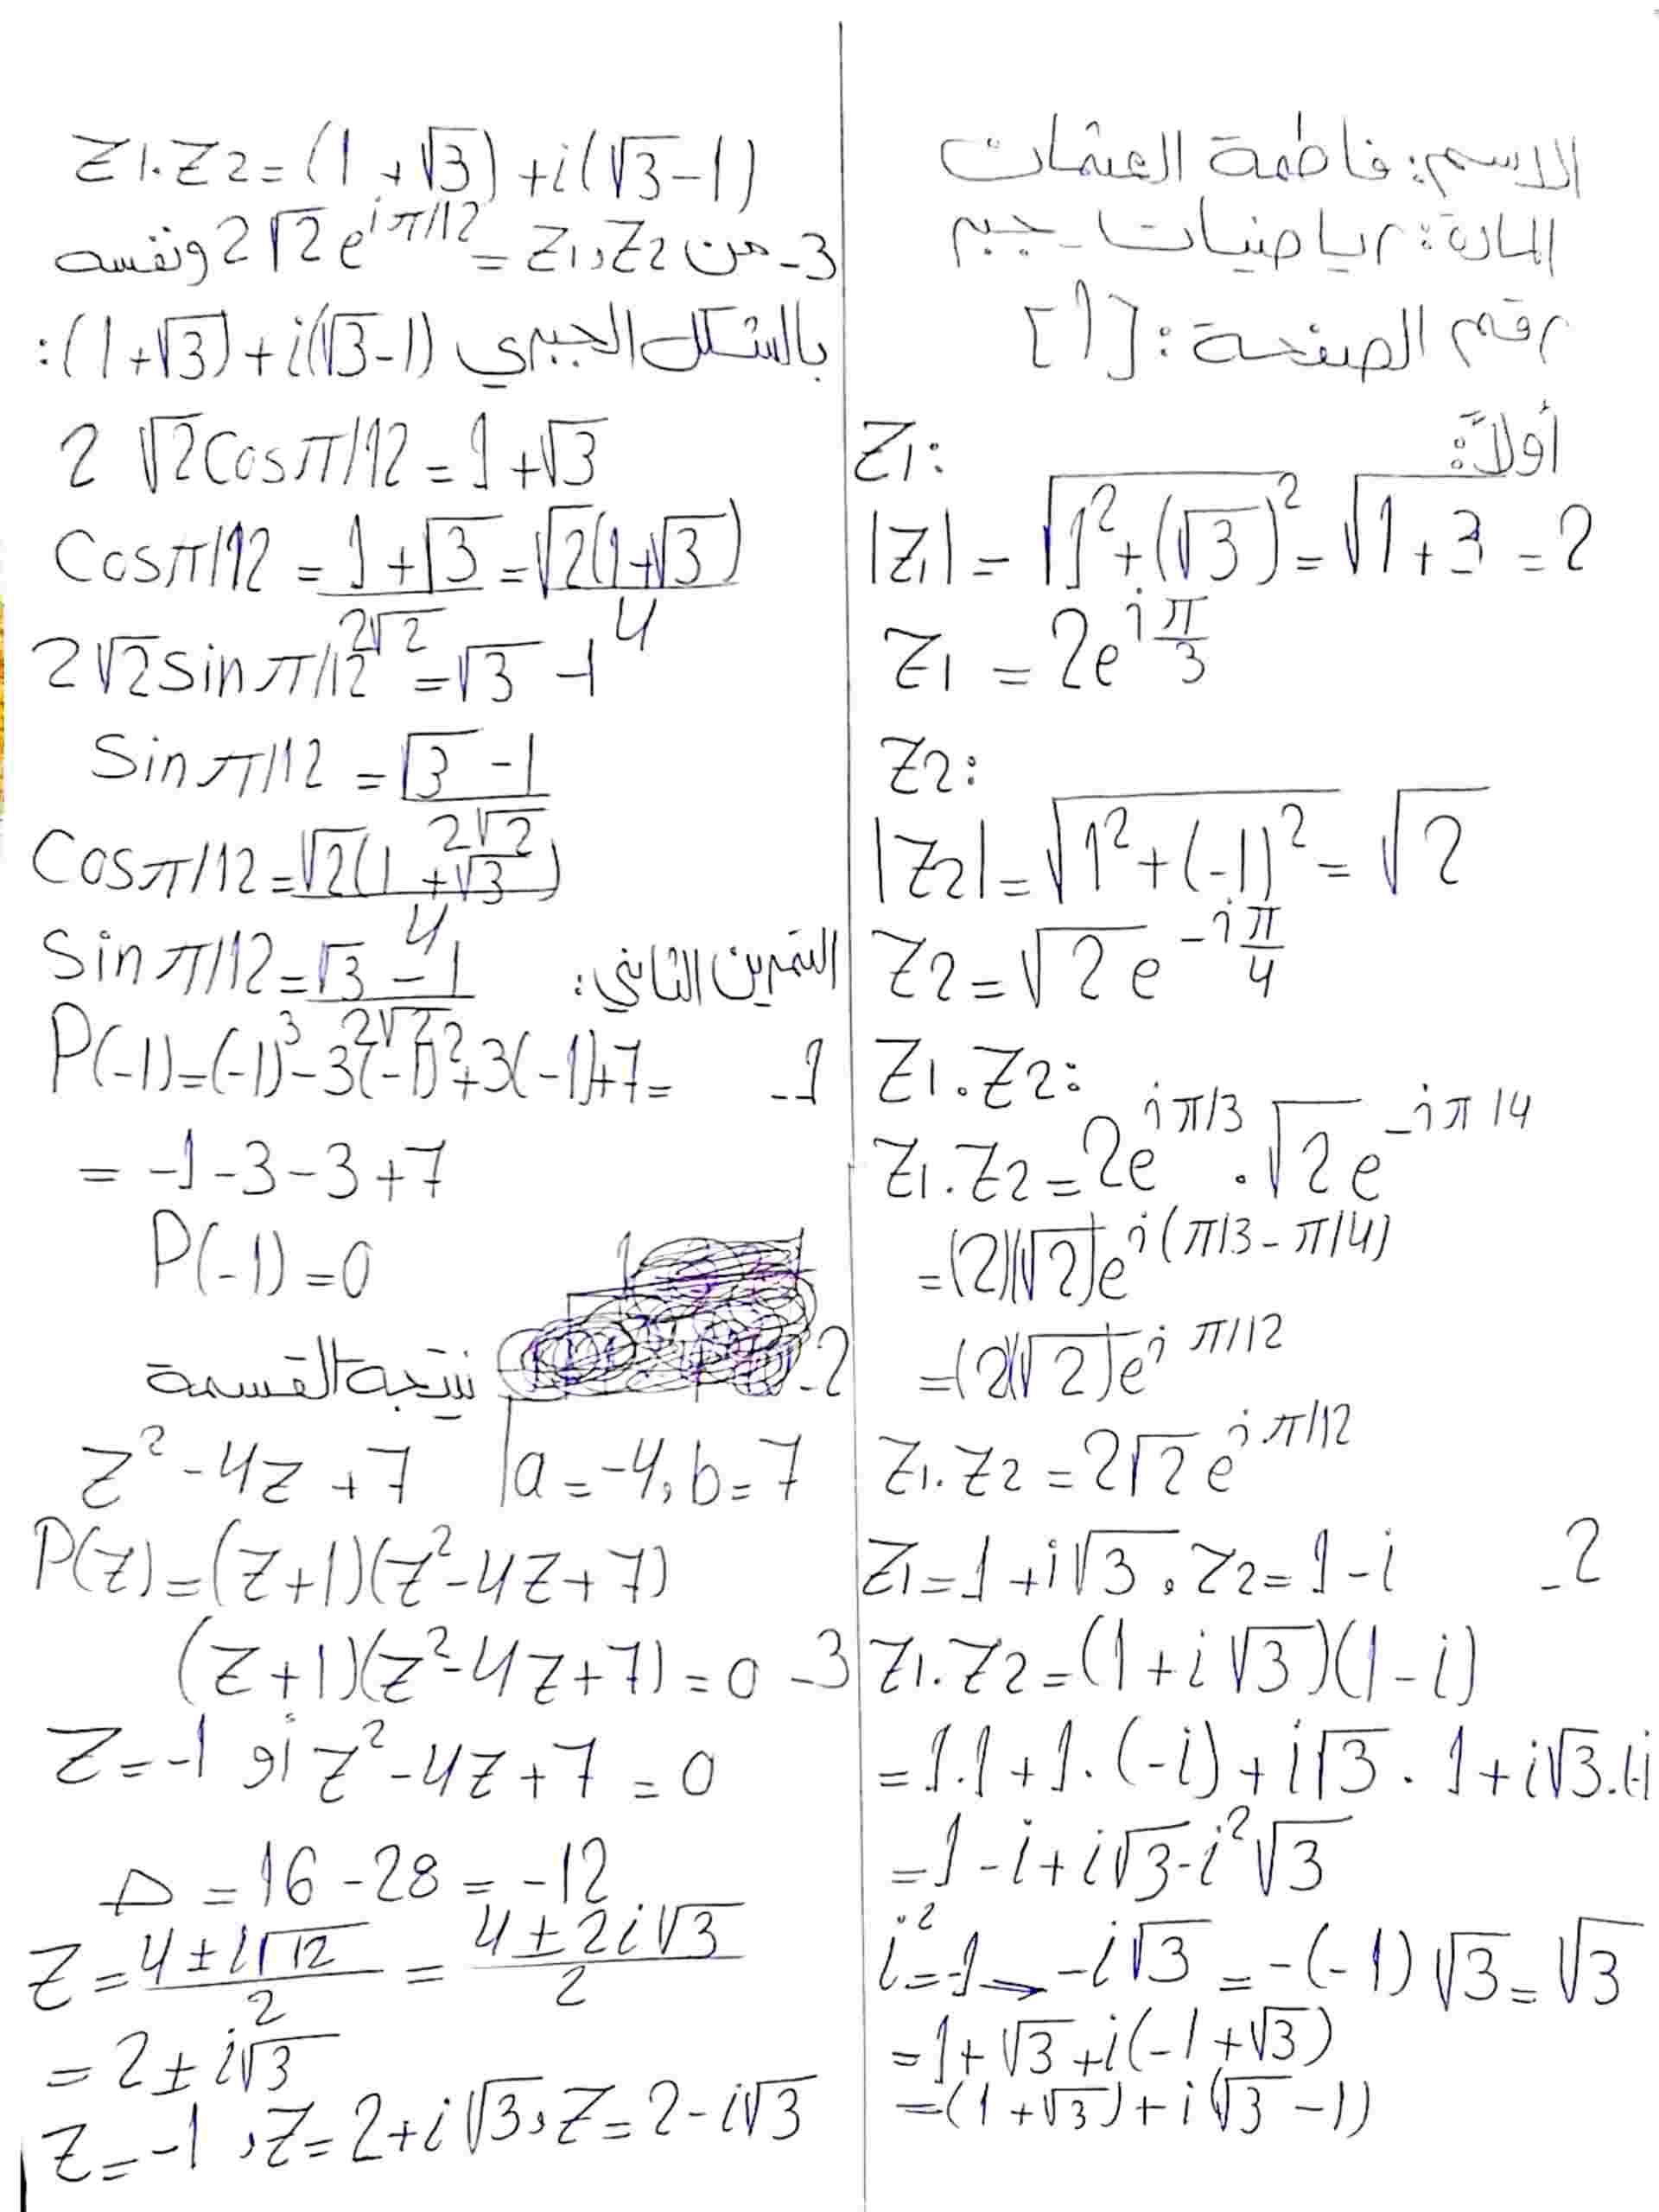 الاسم: فاطمة العثمات
المادة: رياضيات - جبر
رقم الصفحة: [1]
أولاً:
Z1:
|Z1| = √(1² + (√3)²) = √(1 + 3) = 2
Z1 = 2e^(i π/3)
Z2:
|Z2| = √(1² + (-1)²) = √2
Z2 = √2 e^(-i π/4)
Z1 . Z2:
Z1 . Z2 = 2e^(iπ/3) . √2 e^(-iπ/4)
= (2)(√2) e^(i(π/3 - π/4))
= (2)(√2) e^(i π/12)
Z1 . Z2 = 2√2 e^(i π/12)
2- Z1 = 1 + i√3 , Z2 = 1 - i
Z1 . Z2 = (1 + i√3)(1 - i)
= 1.1 + 1.(-i) + i√3 . 1 + i√3.(-i
= 1 - i + i√3 - i²√3
i² = -1 → -i√3 = -(-1)√3 = √3
= 1 + √3 + i(-1 + √3)
= (1 + √3) + i(√3 - 1)
Z1. Z2 = (1 + √3) + i(√3 - 1)
3- من Z1, Z2 = 2√2 e^(iπ/12) ونفسه
بالشكل الجبري (1 + √3) + i(√3 - 1) :
2 √2 Cos π/12 = 1 + √3
Cos π/12 = (1 + √3)/(2√2) = √2(1 + √3)/4
2√2 sin π/12 = √3 - 1
Sin π/12 = (√3 - 1)/(2√2)
Cos π/12 = √2(1 + √3)/4
Sin π/12 = (√3 - 1)/(2√2)
التمرين الثاني:
1- P(-1) = (-1)³ - 3(-1)² + 3(-1) + 7 =
= -1 - 3 - 3 + 7
P(-1) = 0
2- نتيجة القسمة
Z² - 4Z + 7 | a = -4, b = 7
P(Z) = (Z + 1)(Z² - 4Z + 7)
3- (Z + 1)(Z² - 4Z + 7) = 0
Z = -1 أو Z² - 4Z + 7 = 0
Δ = 16 - 28 = -12
Z = (4 ± i√12)/2 = (4 ± 2i√3)/2
= 2 ± i√3
Z = -1 , Z = 2 + i√3 , Z = 2 - i√3